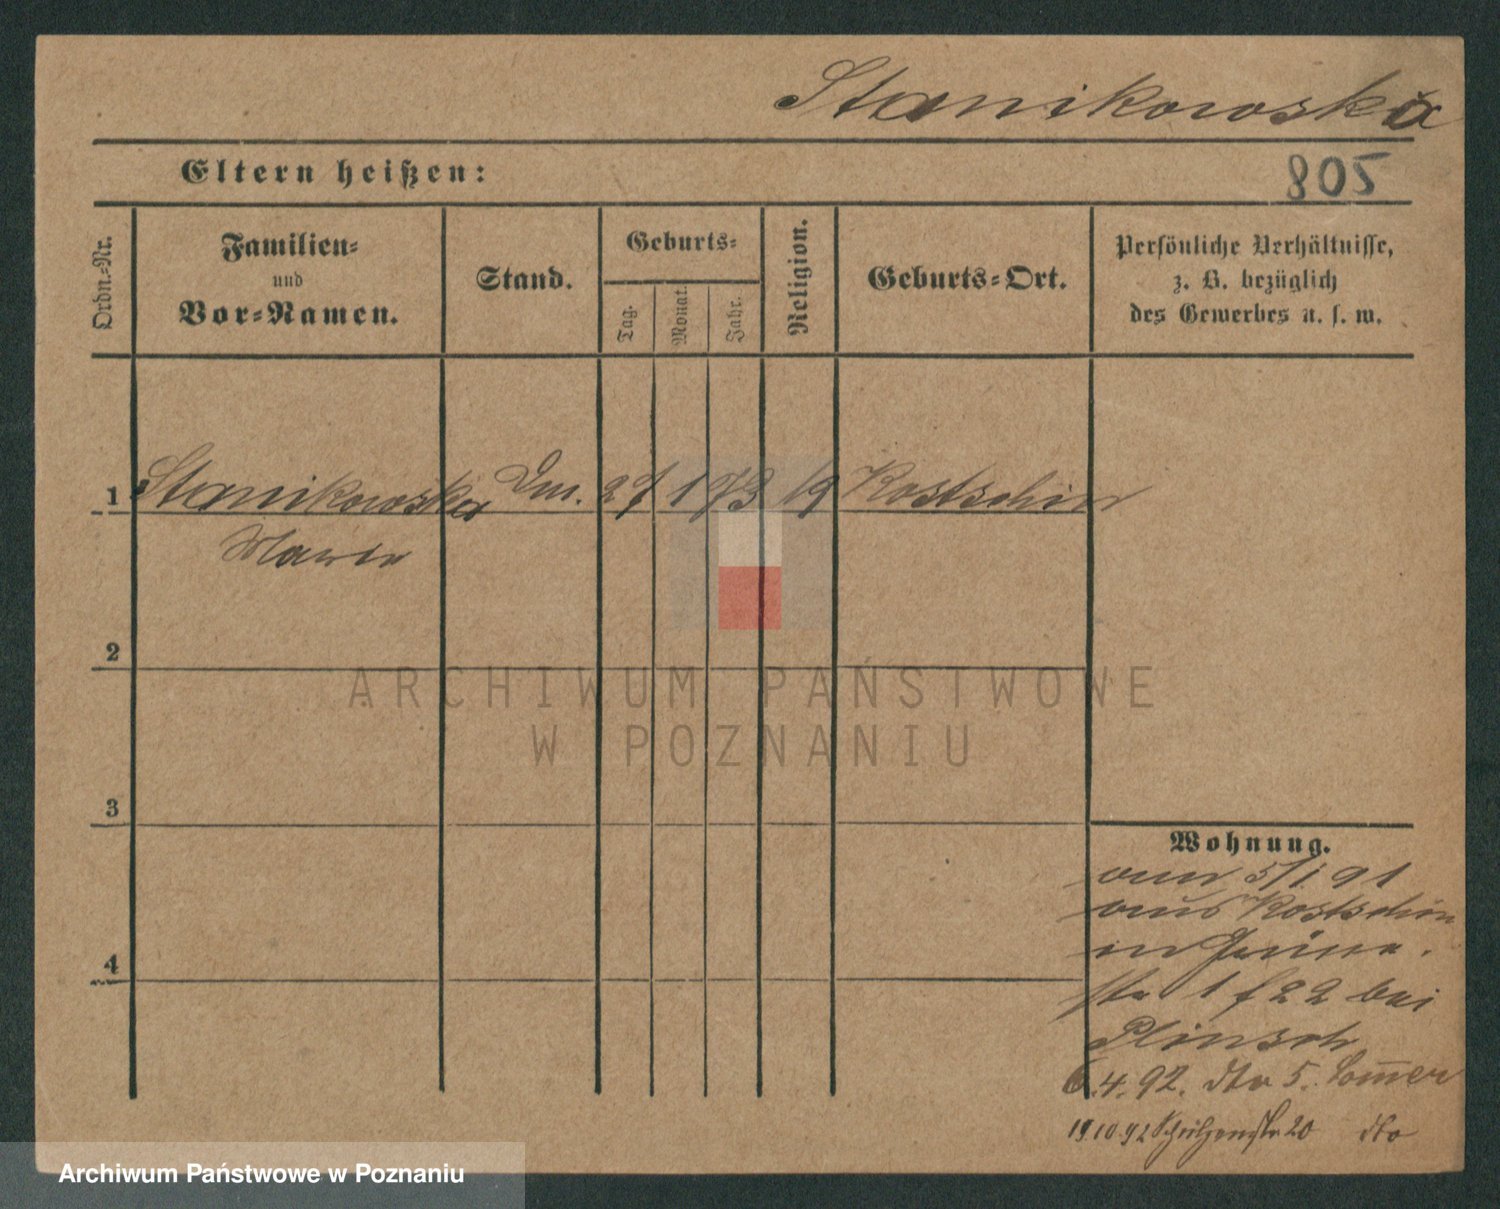 Stanikowska
Eltern heißen:
805
Ordn.-Nr.
Familien-
und
Vor-Namen.
Stand.
Geburts-
Tag.
Monat.
Jahr.
Religion.
Geburts-Ort.
Persönliche Verhältnisse,
z. B. bezüglich
des Gewerbes u. s. w.
1 Stanikowska 27 1 73 Kostschin
Marie
2
3
4
Wohnung.
5/1 91
aus Kostschin
in
str 1 f 22 bei
Plinsch
6.4.92. dto 5. Sommer
19.10.92 Schützenstr 20 dto
ARCHIWUM PAŃSTWOWE
W POZNANIU
Archiwum Państwowe w Poznaniu